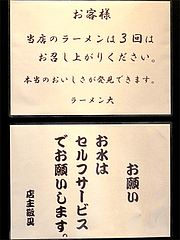 お客様
当店のラーメンは３回は
お召し上がりください。
本当のおいしさが発見できます。
ラーメン大
お願い
お水は
セルフサービス
でお願いします。
店主敬白